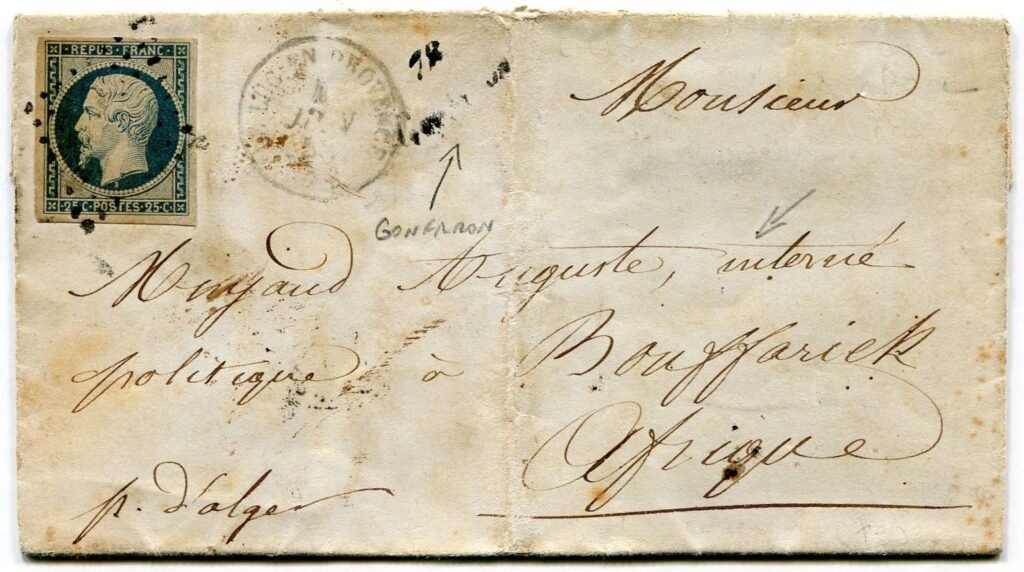 REPUB FRANC
25 C POSTES 25 C
LUC-EN-PROVENCE
4
JUIN
78
GONFARON
Monsieur
Auguste, interné
politique à Bouffarick
Afrique
p. d'alger